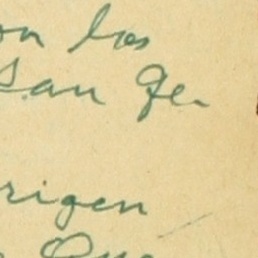 on los
San Ge-
rigen